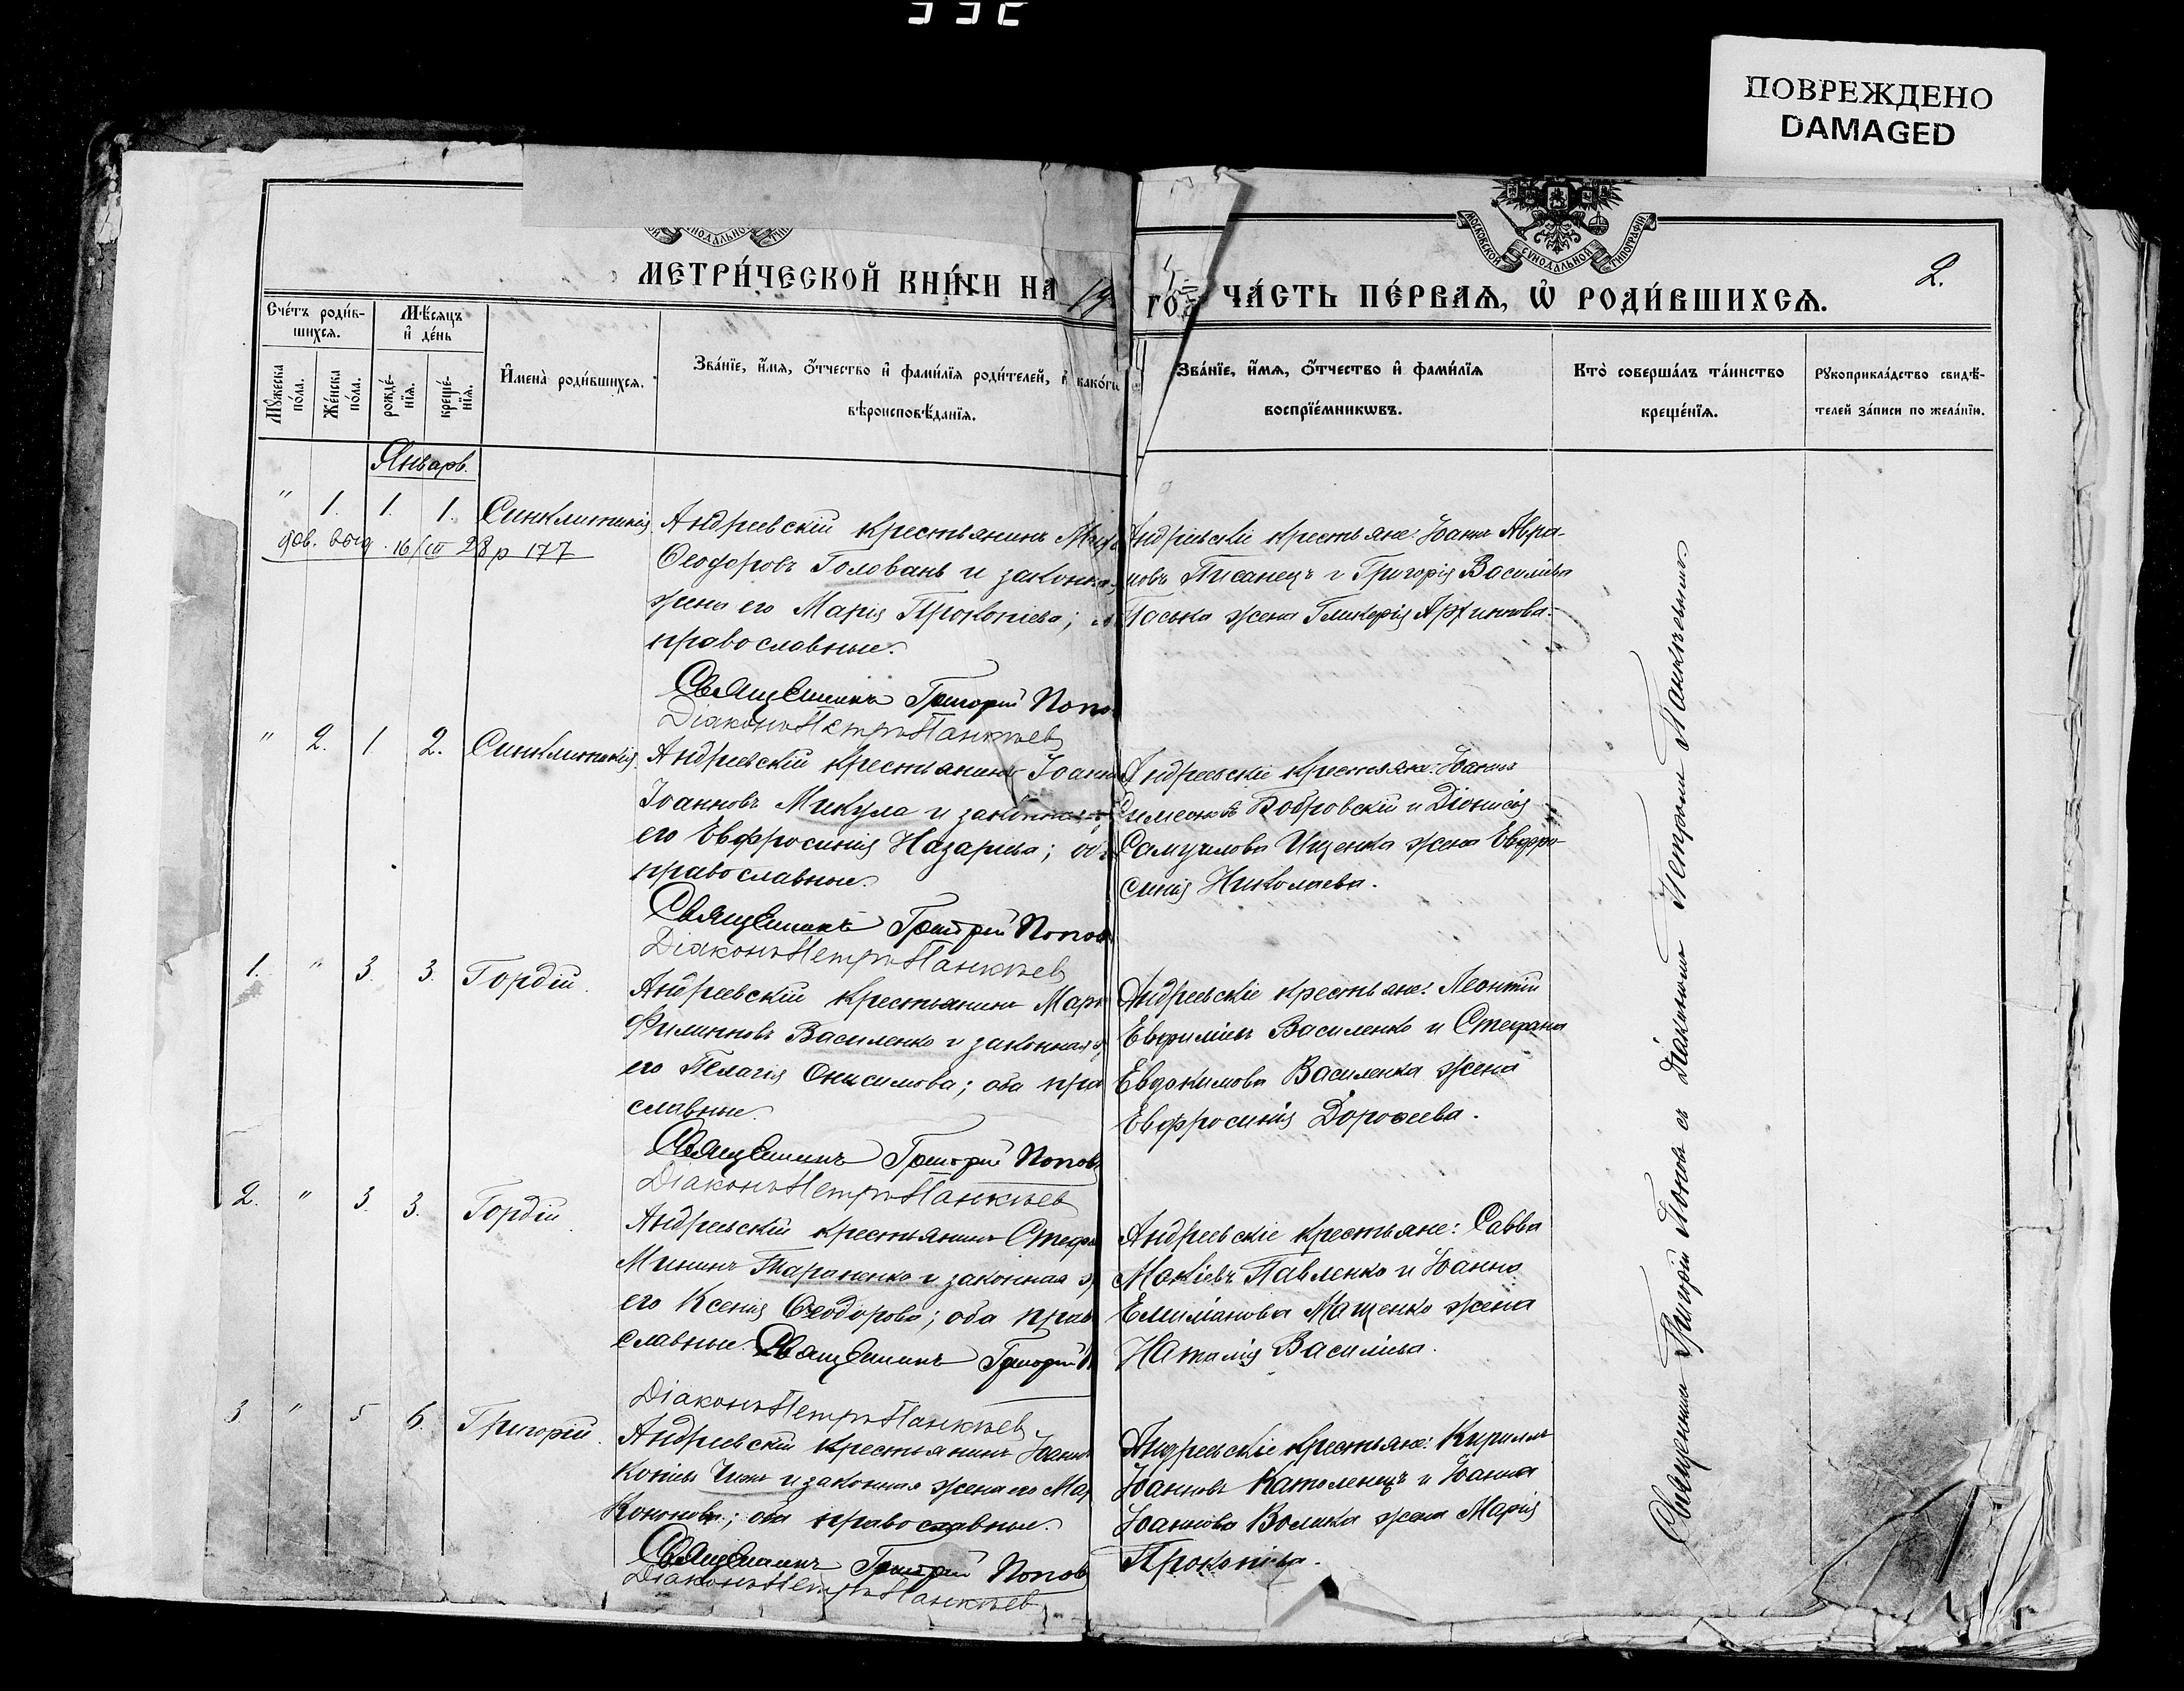 ПОВРЕЖДЕНО
DAMAGED
МОСКОВСКОЙ СУНОДАЛЬНОЙ ТИПОГРАФІИ
2.
МЕТРИ́ЧЕСКОЙ КНИ́ГИ НА 19
ГО ЧА́СТЬ ПЕ́РВАѦ, Ѡ҆ РОДИ́ВШИХСѦ.
Сче́тъ роди́в-
шихсѧ.
Мꙋ́жеска по́ла.
Же́нска по́ла.
Мѣ́сѧцъ и҆ де́нь
рожде́-нїѧ.
креще́-нїѧ.
И҆мена̀ роди́вшихсѧ.
Зва́нїе, и҆́мѧ, ѻ҆́тчество и҆ фами́лїѧ роди́телей, и҆ како́гѡ
вѣроисповѣ́данїѧ.
Зва́нїе, и҆́мѧ, ѻ҆́тчество и҆ фами́лїѧ
воспрїе́мникѡвъ.
Кто̀ соверша́лъ та́инство
креще́нїѧ.
Рꙋкоприкла́дство свидѣ́-
телей за́писи по жела́нїю.
Январь.
" 1. 1. 1. Синклитикія
16/III 28 р 177
Андреевскій крестьянинъ
Ѳеодоровъ Головань и законна
жена его Марія Прокопіева;
православные.
Священникъ Григорій Попо
Діаконъ Петръ Панкѣев
Андреевскіе крестьяне: Іоаннъ Авра-
мовъ Писанецъ и Григорія Василіева
Паська жена Гликерія Архипова.
" 2. 1 2. Синклитикія.
Андреевскій крестьянинъ Іоанн
Іоанновъ Микула и законная
его Евфросинія Назаріева; оба
православные.
Священникъ Григорій Попов
Діаконъ Петръ Панкѣев
Андреевскіе крестьяне: Іоаннъ
Симеоновъ Бобровскій и Діонисія
Самуилова Ищенка жена Евфро-
синія Николаева.
1. " 3. 3. Гордій.
Андреевскій крестьянинъ Марк
Филипповъ Василенко и законная ж
его Пелагія Онисимова; оба пра
славные.
Священникъ Григорій Попов
Діаконъ Петръ Панкѣев
Андреевскіе крестьяне: Леонтій
Евфиміевъ Василенко и Стефана
Евдокимова Василенка жена
Евфросинія Дороѳеева.
2. " 3. 3. Гордій.
Андреевскій крестьянинъ Стефа
Мининъ Тараненко и законная ж
его Ксенія Ѳеодорова; оба прав
славные. Священникъ Григорій П
Діаконъ Петръ Панкѣев
Андреевскіе крестьяне: Савва
Мокіевъ Павленко и Іоанна
Емиліанова Мащенко жена
Наталія Василіева.
3 " 5 6. Григорій.
Андреевскій крестьянинъ Іоаннъ
и законная жена его Мар
Кононова; оба православные.
Священникъ Григорій Попов
Діаконъ Петръ Панкѣев
Андреевскіе крестьяне: Кириллъ
Іоанновъ Католенецъ и Іоанна
Іоаннова Волика жена Марія
Прокопіева.
Священникъ Григорій Поповъ съ Діакономъ Петромъ Панкѣевымъ.